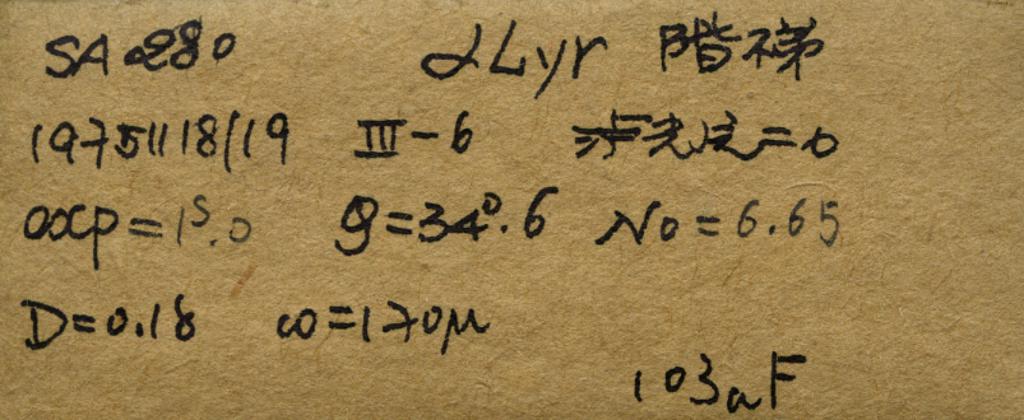 SA 280 αLyr 階梯
19751118/19 III-6
exp=1ˢ.0 θ=34°.6 No=6.65
D=0.18 ω=170μ
103aF